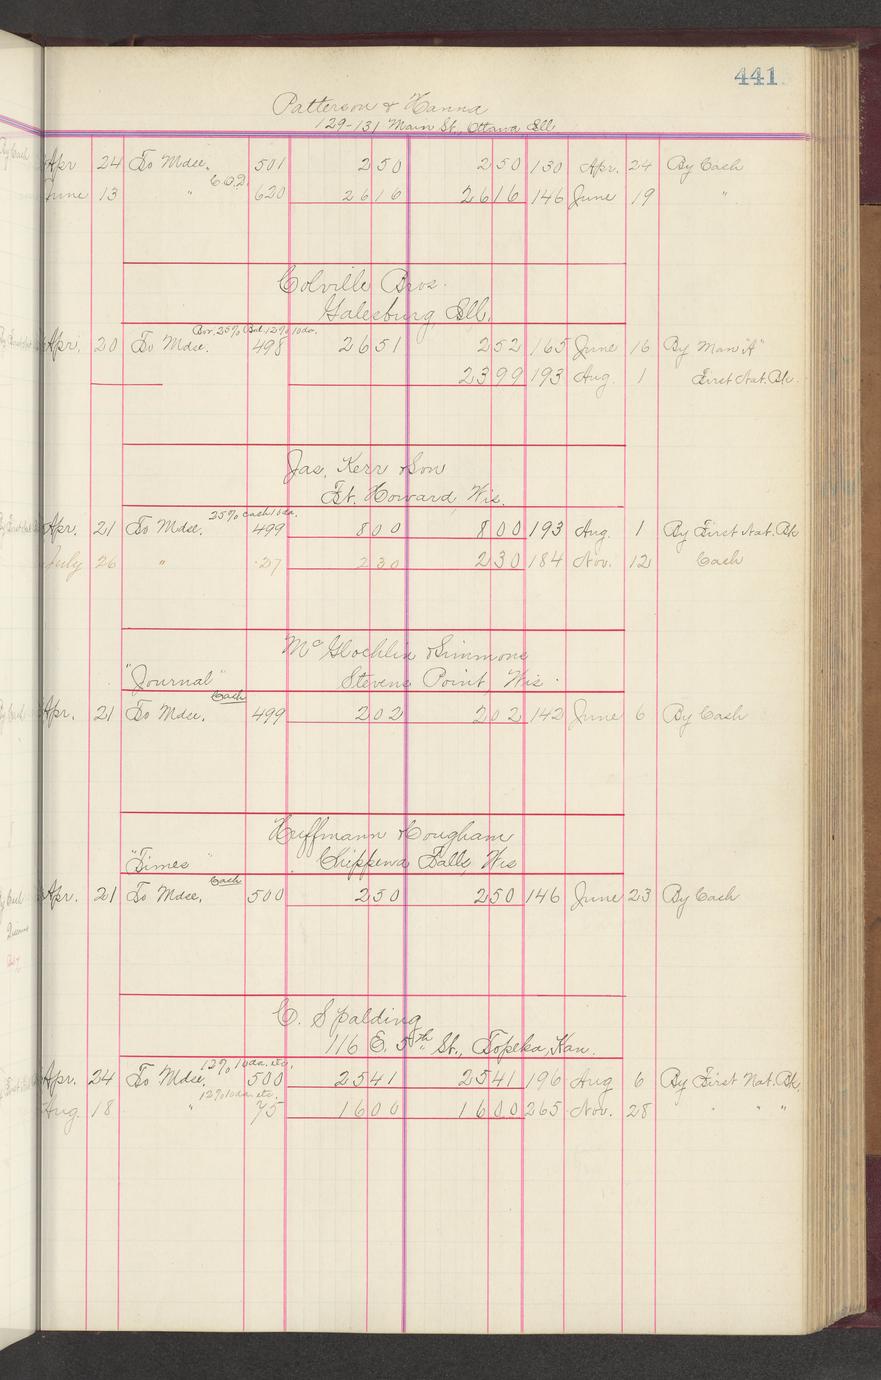 441
Patterson & Hanna
129-131 Main St., Ottawa Ill
Apr 24 To Mdse. 501 2 50 2 50 130 Apr. 24 By Cash
C.O.D.
June 13 " 620 26 16 26 16 146 June 19 "
Colville Bros.
Galesburg, Ill.
Bor. 25% Bal. 12% 10 da.
Apr. 20 To Mdse. 498 26 51 2 52 165 June 16 By Man "A"
23 99 193 Aug. 1 First Nat. Bk.
Jas. Kerr & Son
Ft. Howard, Wis.
25% Cash 10 da.
Apr. 21 To Mdse. 499 8 00 8 00 193 Aug. 1 By First Nat. Bk
July 26 " 27 2 30 2 30 184 Nov. 12 Cash
McGlachlin & Simmons
"Journal" Stevens Point, Wis.
Cash
Apr. 21 To Mdse. 499 2 02 2 02 142 June 6 By Cash
Huffmann & Hougham
"Times" Chippewa Falls, Wis
Cash
Apr. 21 To Mdse. 500 2 50 2 50 146 June 23 By Cash
C. Spalding
116 E. 5th St., Topeka, Kan.
12% 10 da. etc.
Apr. 24 To Mdse. 500 25 41 25 41 196 Aug 6 By First Nat. Bk.
12% 10 da. etc.
Aug. 18 " 75 16 00 16 00 265 Nov. 28 " " "